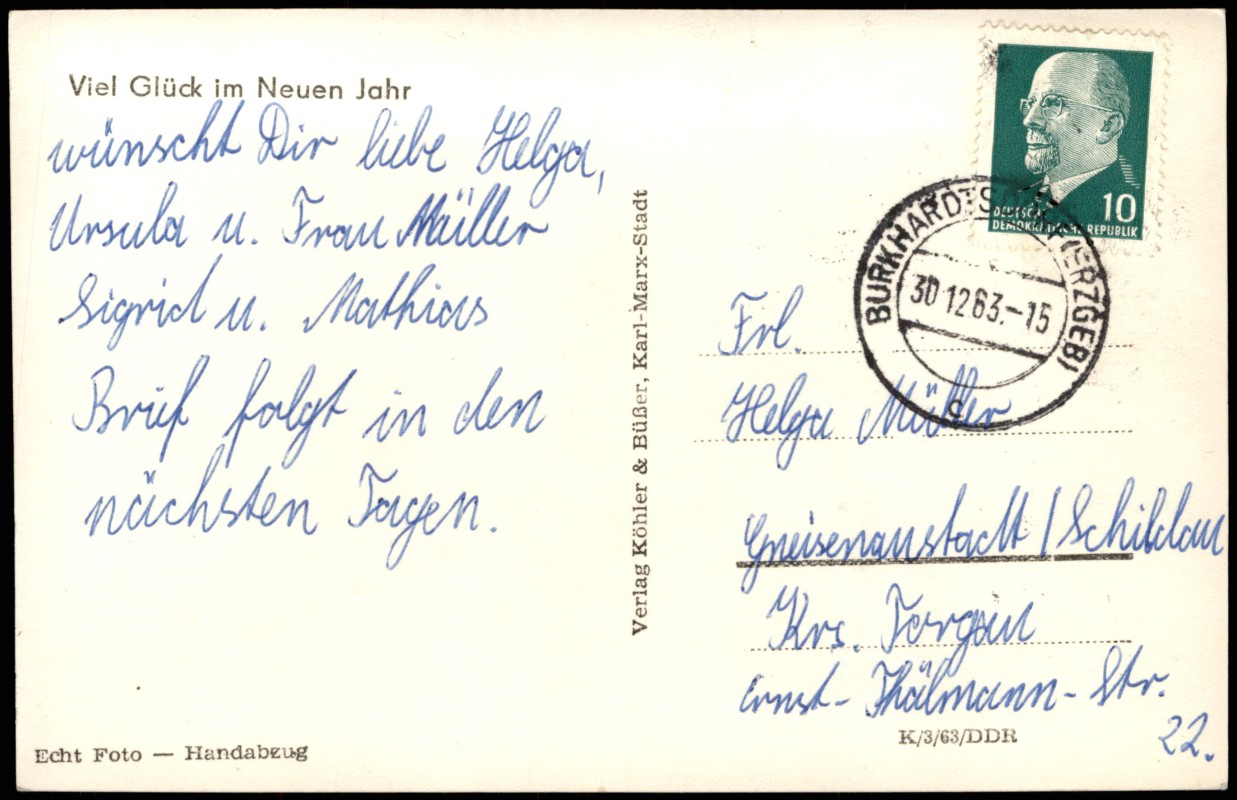 Viel Glück im Neuen Jahr
wünscht Dir liebe Helga,
Ursula u. Frau Müller
Sigrid u. Mathias
Brief folgt in den
nächsten Tagen.
Echt Foto — Handabzug
Verlag Köhler & Büßer, Karl-Marx-Stadt
10
DEUTSCHE
DEMOKRATISCHE REPUBLIK
BURKHARDTSDORF (ERZGEB)
30 12 63.-15
c
Frl.
Helga Müller
Gneisenaustadt / Schildau
Krs. Torgau
Ernst-Thälmann-Str.
22.
K/3/63/DDR